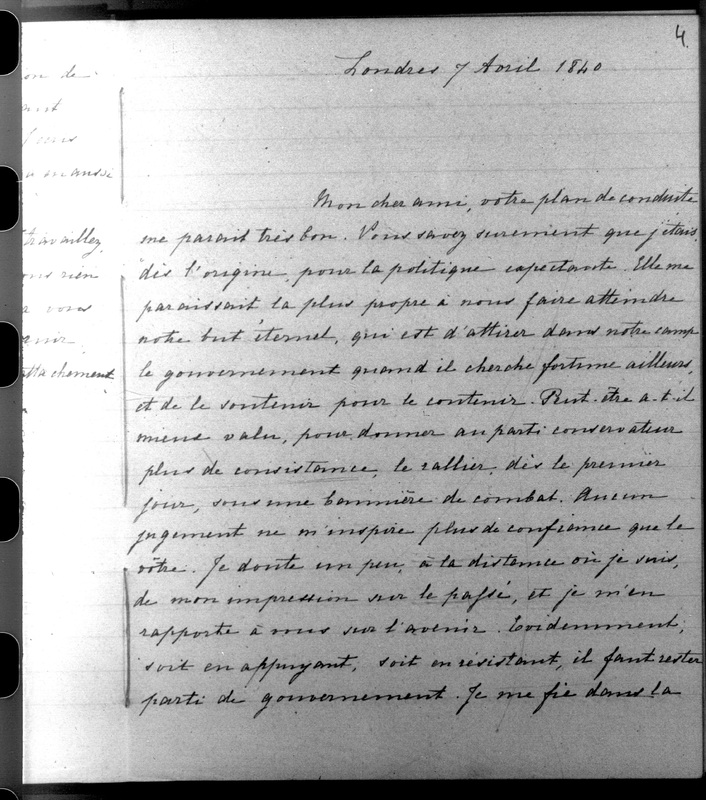 4.
Londres 7 Avril 1840
on de
ant
aussi
travaillez
ous rien
a vous
enir
attachement
Mon cher ami, votre plan de conduite
me parait très bon. Vous savez surement que j'étais,
dès l'origine, pour la politique expectante. Elle me
paraissait la plus propre à nous faire atteindre
notre but éternel, qui est d'attirer dans notre camp
le gouvernement quand il cherche fortune ailleurs,
et de le soutenir pour le contenir. Peut-être a-t-il
mieux valu, pour donner au parti conservateur
plus de consistance, le rallier dès le premier
jour, sous une bannière de combat. Aucun
jugement ne m'inspire plus de confiance que le
vôtre. Je doute un peu, à la distance où je suis,
de mon impression sur le passé, et je m'en
rapporte à vous sur l'avenir. Evidemment,
soit en appuyant, soit en résistant, il faut rester
parti de gouvernement. Je me fie dans la